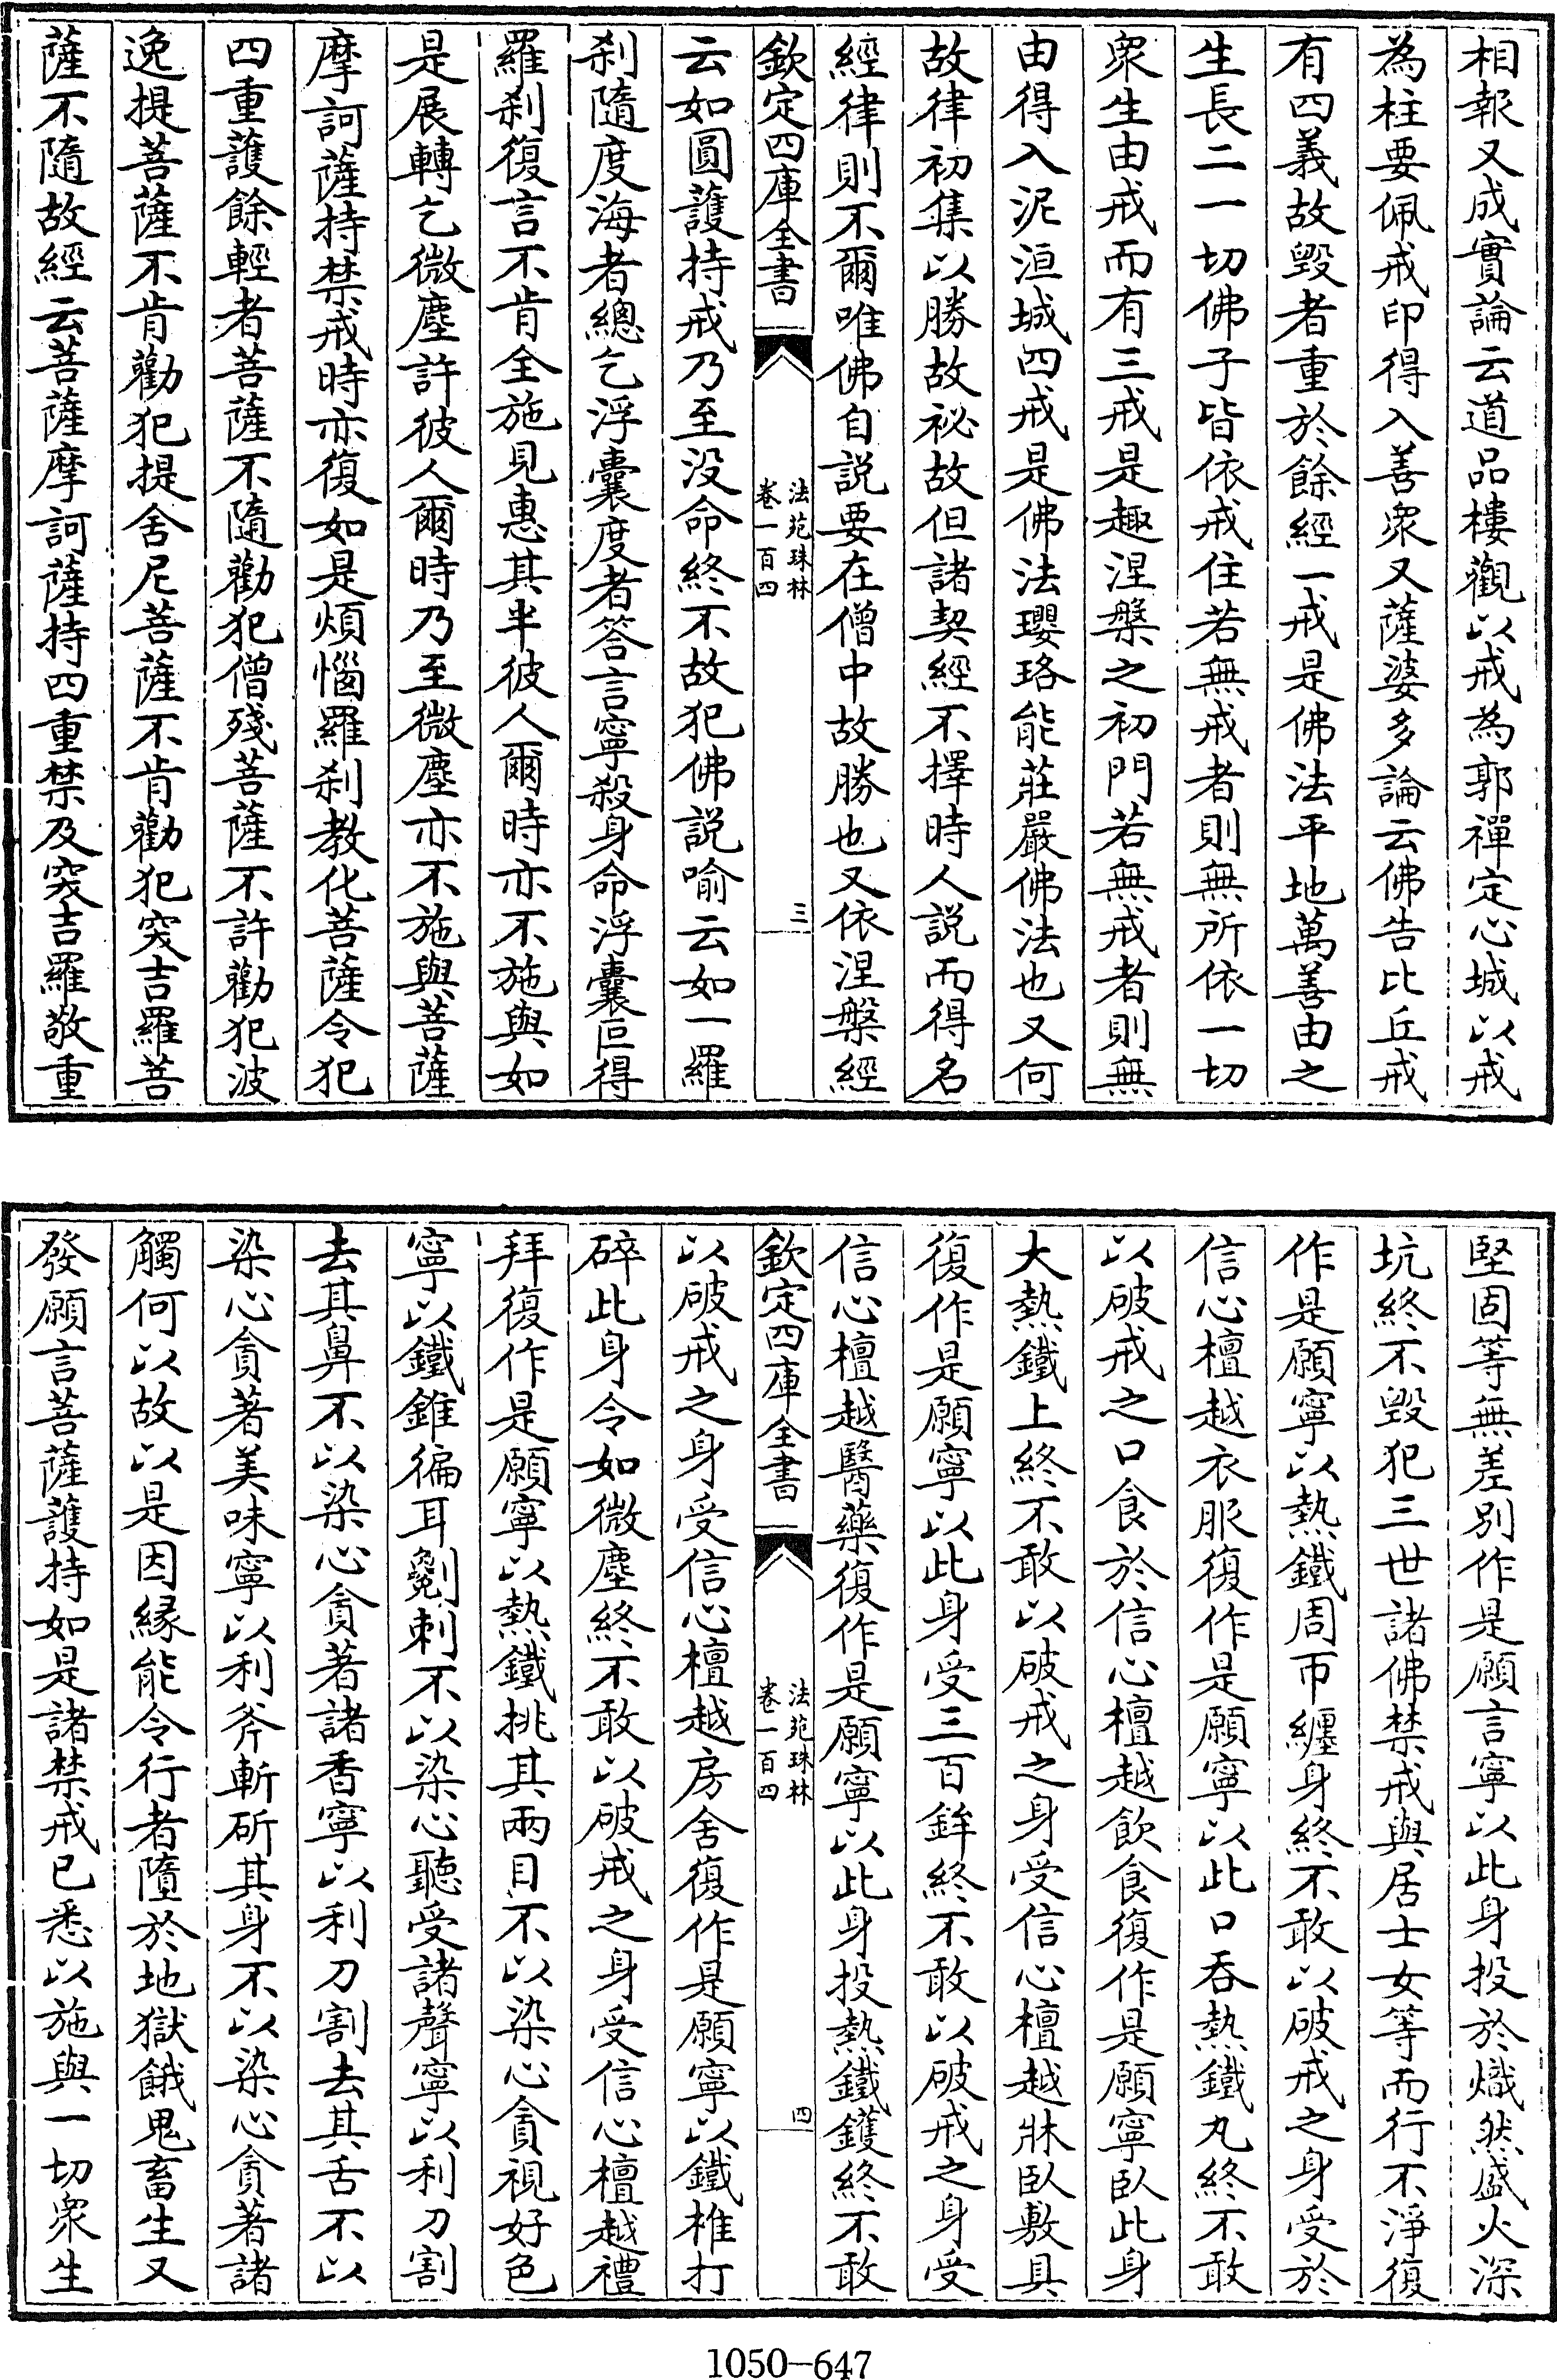 相報又成實論云道品樓觀以戒為郭禪定心城以戒
為柱要佩戒印得入善衆又薩婆多論云佛告比丘戒
有四義故毀者重於餘經一戒是佛法平地萬善由之
生長二一切佛子皆依戒住若無戒者則無所依一切
衆生由戒而有三戒是趣涅槃之初門若無戒者則無
由得入泥洹城四戒是佛法瓔珞能莊嚴佛法也又何
故律初集以勝故祕故但諸契經不擇時人説而得名
經律則不爾唯佛自説要在僧中故勝也又依涅槃經
欽定四庫全書
法苑珠林
卷一百四
三
云如圓護持戒乃至没命終不故犯佛説喻云如一羅
刹隨度海者總乞浮囊度者答言寧殺身命浮囊叵得
羅刹復言不肯全施見惠其半彼人爾時亦不施與如
是展轉乞微塵許彼人爾時乃至微塵亦不施與菩薩
摩訶薩持禁戒時亦復如是煩惱羅刹教化菩薩令犯
四重護餘輕者菩薩不隨勸犯僧殘菩薩不許勸犯波
逸提菩薩不肯勸犯提舍尼菩薩不肯勸犯突吉羅菩
薩不隨故經云菩薩摩訶薩持四重禁及突吉羅敬重
堅固等無差别作是願言寧以此身投於熾然盛火深
坑終不毀犯三世諸佛禁戒與居士女等而行不淨復
作是願寧以熱鐵周帀纏身終不敢以破戒之身受於
信心檀越衣服復作是願寧以此口吞熱鐵丸終不敢
以破戒之口食於信心檀越飲食復作是願寧臥此身
大熱鐵上終不敢以破戒之身受信心檀越牀臥敷具
復作是願寧以此身受三百鉾終不敢以破戒之身受
信心檀越醫藥復作是願寧以此身投熱鐵鑊終不敢
欽定四庫全書
法苑珠林
卷一百四
四
以破戒之身受信心檀越房舍復作是願寧以鐵椎打
碎此身令如微塵終不敢以破戒之身受信心檀越禮
拜復作是願寧以熱鐵挑其兩目不以染心貪視好色
寧以鐵錐徧耳劖刺不以染心聽受諸聲寧以利刀割
去其鼻不以染心貪著諸香寧以利刀割去其舌不以
染心貪著美味寧以利斧斬斫其身不以染心貪著諸
觸何以故以是因緣能令行者墮於地獄餓鬼畜生又
發願言菩薩護持如是諸禁戒已悉以施與一切衆生
1050-647